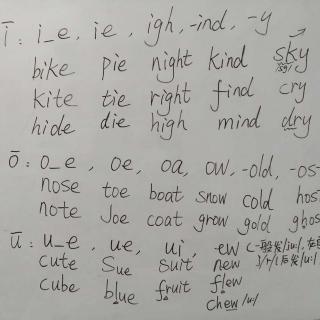 ī : i_e, ie, igh, -ind, -y
bike pie night kind sky
/sg/
kite tie right find cry
hide die high mind dry
ō : o_e, oe, oa, ow, -old, -os
nose toe boat snow cold hos
note Joe coat grow gold ghos
ū : u_e, ue, ui, ew (一般发/ju:/, 在
cute Sue suit new J/r/l后发/u:/)
cube blue fruit flew
chew /u:/